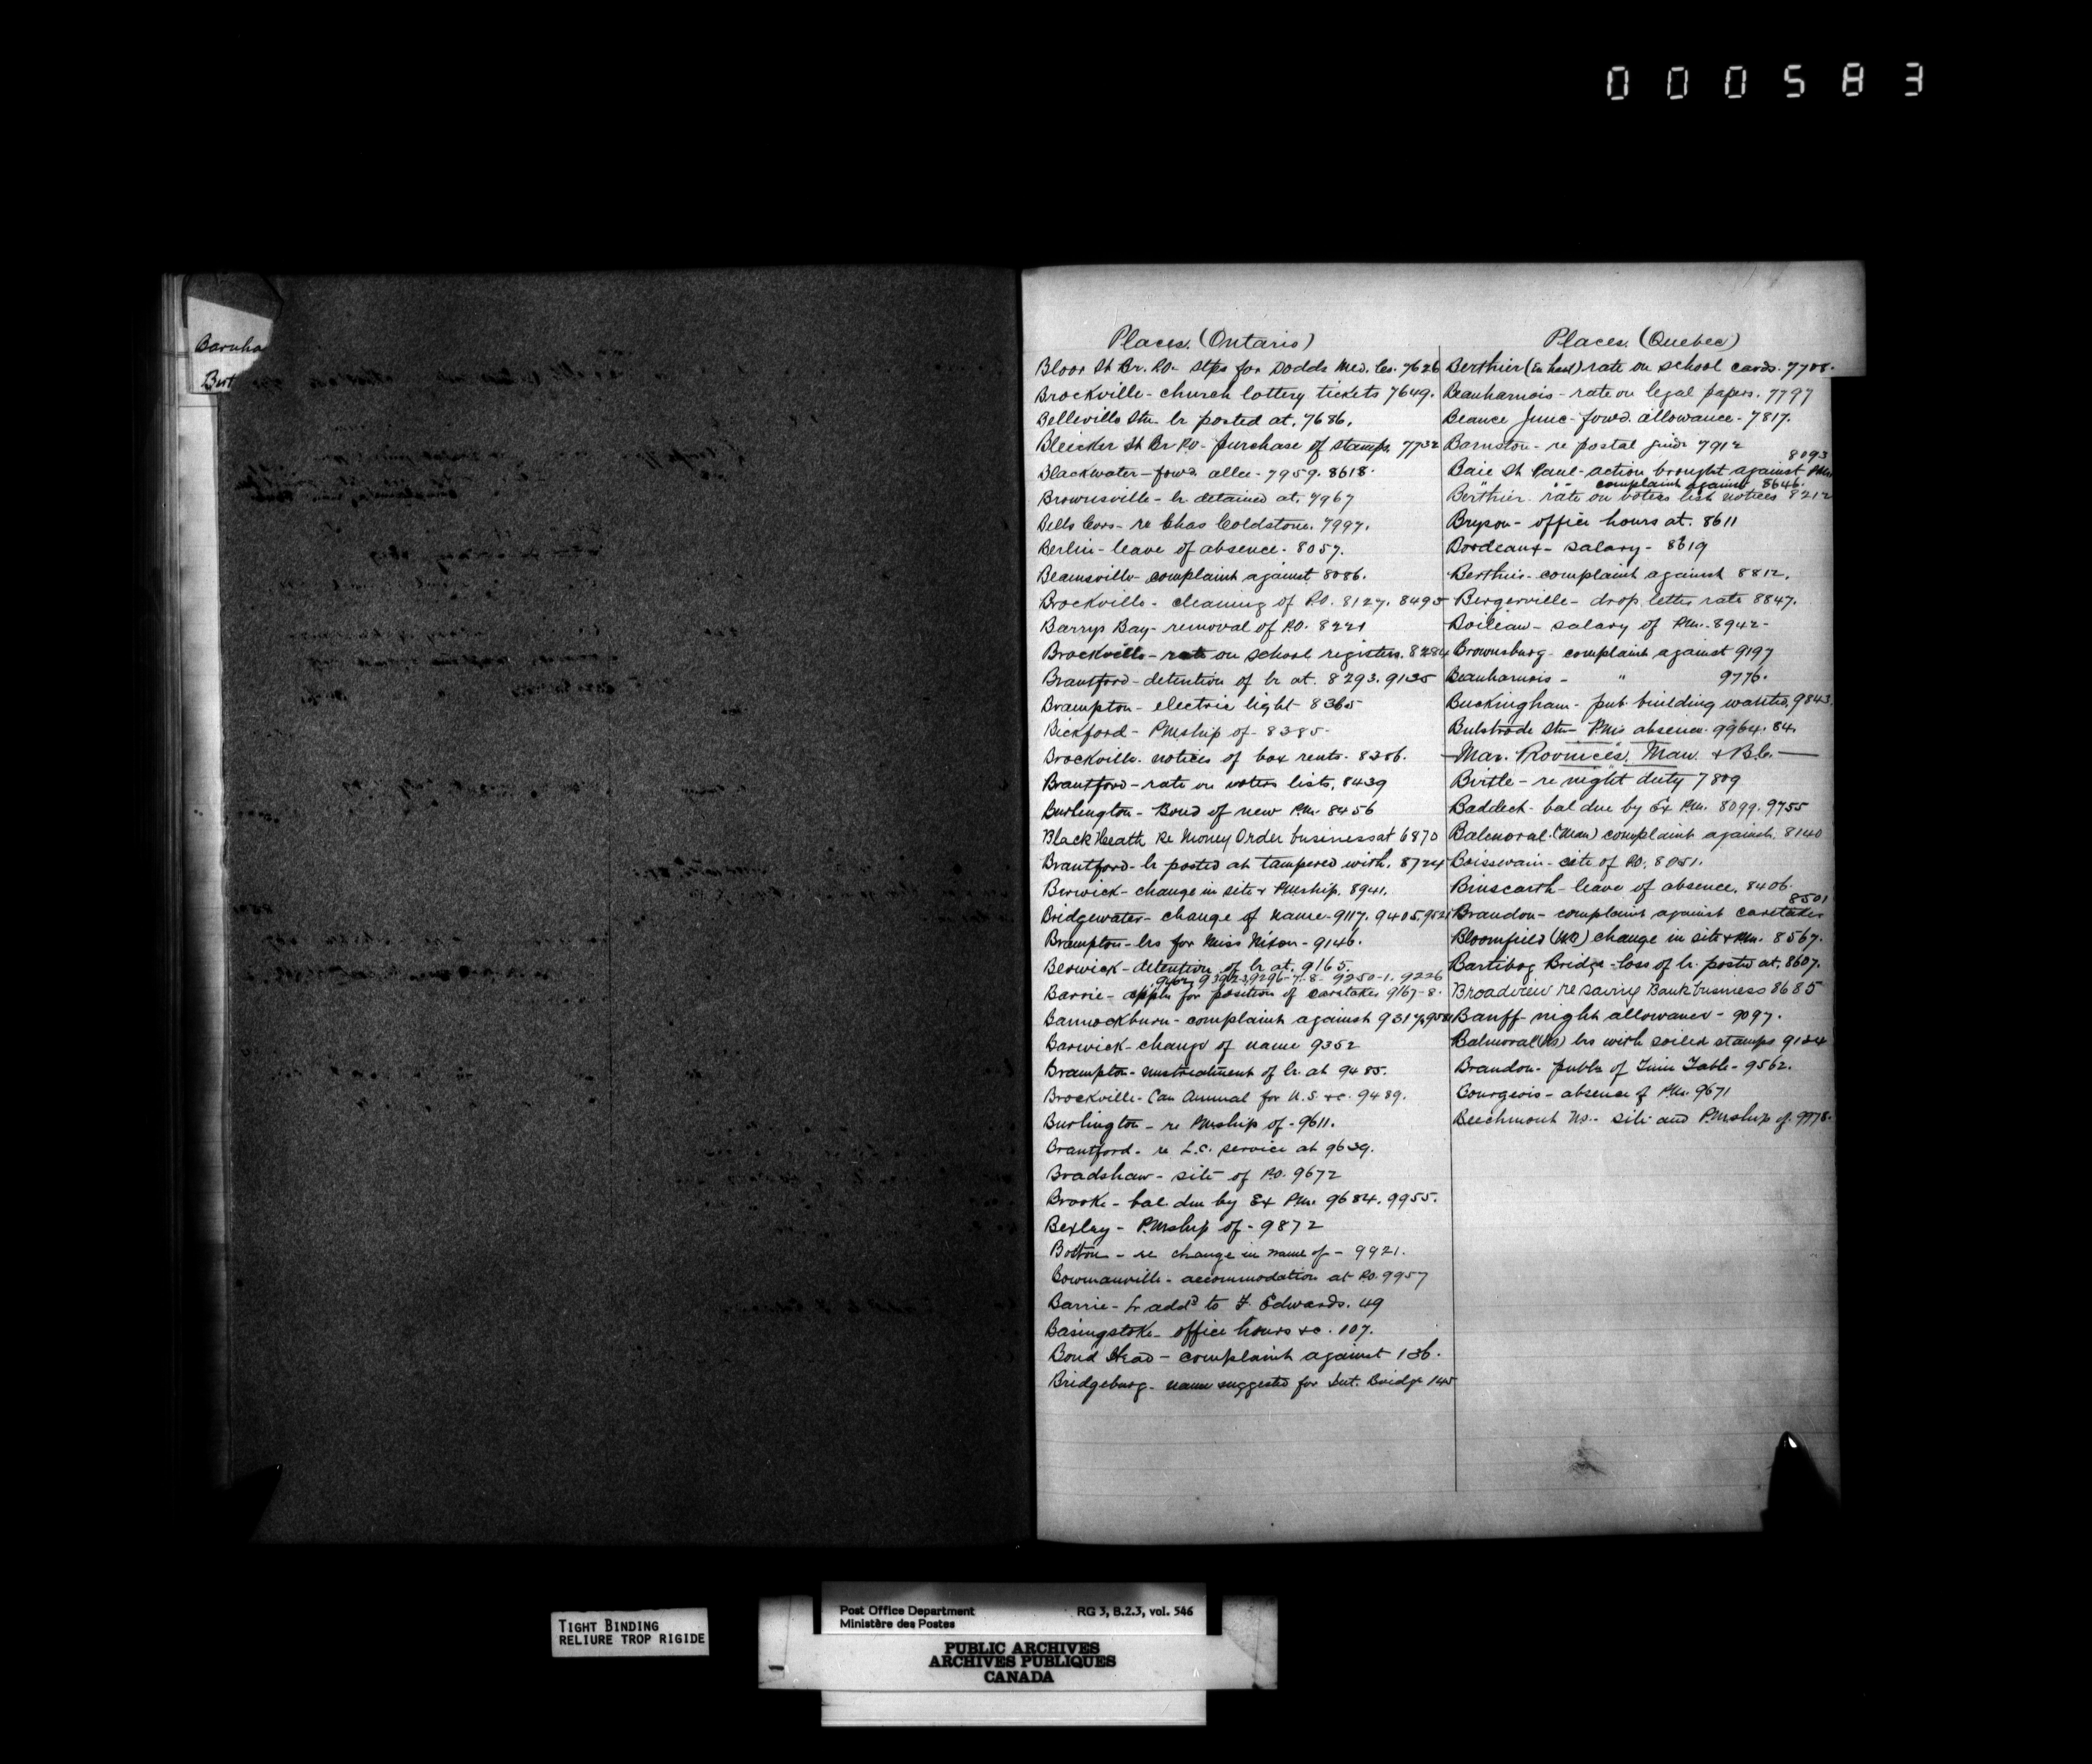 000583
Barnha
Bert
Places. (Ontario)
Bloor St Br. P.O. stps for Dodds Med. Co. 7626
Brockville - church lottery tickets 7649.
Belleville Stn lr posted at. 7686.
Bleicker St Br P.O. purchase of stamps. 7732
Blackwater - fowd. allce - 7959. 8618.
Brownsville - lr detained at. 7967
Bells Cors - re Chas Coldstone. 7997.
Berlin - leave of absence. 8057.
Beamsville - complaint against 8086.
Brockville - cleaning of P.O. 8127. 8495
Barrys Bay - removal of P.O. 8221
Brockville - rate on school registers. 8284
Brantford - detention of lr at. 8293. 9135
Brampton - electric light 8365
Bickford - PMship of - 8385 -
Brockville. notices of box rents. 8386.
Brantford - rate on voters lists, 8439
Burlington - Bond of new P.M. 8456
Black Heath Re Money Order business at 6870
Brantford - lr posted at tampered with. 8724
Berwick - change in site & PMship. 8941.
Bridgewater - change of name - 9117. 9405. 9521
Brampton - lrs for Miss Nixon - 9146.
Berwick - detention of lr at. 9165.
9296-7-8- 9250-1. 9226
Barrie - appln for position of caretaker 9167-8.
Bannockburn - complaint against 9317.
Barwick - change of name 9352
Brampton - mistreatment of lr at 9485.
Brockville - Can Annual for U.S. &c. 9489.
Burlington - re PMship of - 9611.
Brantford - re L.C. service at 9639.
Bradshaw - site of P.O. 9672
Brooke - bal due by Ex P.M. 9684. 9955.
Bexley - P.Mship of - 9872
Bolton - re change in name of - 9921.
Bowmanville - accommodation at P.O. 9957
Barrie - lr addd to F. Edwards. 49
Basingstoke - office hours &c. 107.
Bond Head - complaint against 136.
Bridgeburg - name suggested for Int. Bridge 145
Places. (Quebec)
Berthier (en haut) rate on school cards. 7708.
Beauharnois - rate on legal papers. 7797
Beauce Junc - fowd. allowance - 7817.
Barnston - re postal guide 7912
8093
Baie St Paul - action brought against PM
" " complaint against 8646.
Berthier - rate on voters list notices 8212
Bryson - office hours at. 8611
Bordeaux - salary - 8619
Berthier - complaint against 8812.
Bergerville - drop letter rate 8847.
Boileau - salary of P.M. 8942 -
Brownsburg - complaint against 9197
Beauharnois - " 9776.
Buckingham - pub. building wanted, 9843.
Bulstrode Stn - PMs absence. 9964. 84.
Mar. Provinces, Man. & B.C.
Birtle - re night duty 7809
Baddeck - bal due by Ex P.M. 8099. 9755
Balmoral (Man) complaint against. 8140
Boissevain - site of P.O. 8051.
Binscarth - leave of absence. 8406.
8501
Brandon - complaint against caretaker
Bloomfield (NB) change in site & PM. 8567.
Bartibog Bridge - loss of lr. posted at. 8607.
Broadview re Saving Bank business 8685
Banff - night allowance - 9097.
Balmoral (NS) lrs with soiled stamps 9124
Brandon - publn of Time Table - 9562.
Bourgeois - absence of P.M. 9671
Beechmont NS - site and PMship of. 9978.
TIGHT BINDING
RELIURE TROP RIGIDE
Post Office Department RG 3, B.2.3, vol. 546
Ministère des Postes
PUBLIC ARCHIVES
ARCHIVES PUBLIQUES
CANADA